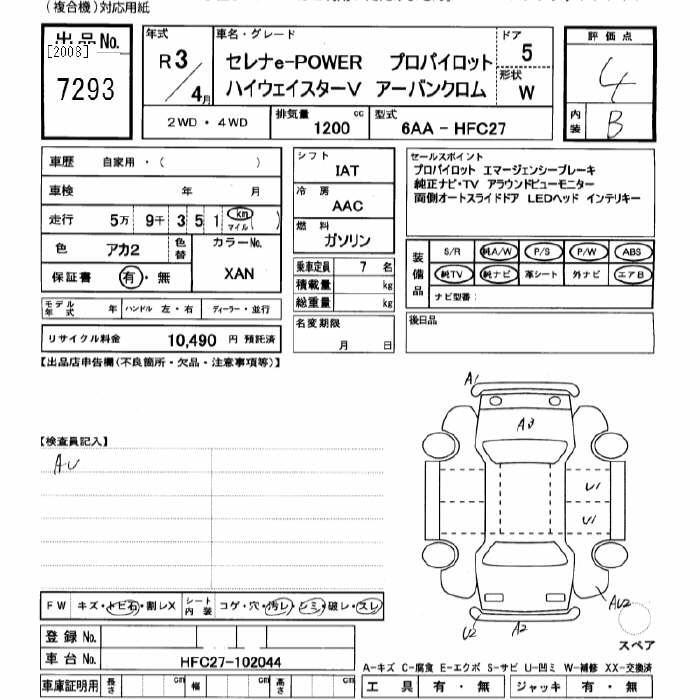 (複合機)対応用紙
出品No.
[2008]
7293
年式
R 3/4月
車名・グレード
セレナe-POWER プロパイロット
ハイウェイスターV アーバンクロム
ドア
5
形状
W
評価点
4
内装
B
2WD・4WD
排気量
1200 cc
型式
6AA-HFC27
車歴 自家用・( )
車検 年 月
走行 5万 9千 3 5 1 km マイル ( )
色 アカ2
色替
カラーNo.
XAN
保証書 有・無
シフト
IAT
冷房
AAC
燃料
ガソリン
乗車定員 7 名
積載量 kg
総重量 kg
セールスポイント
プロパイロット エマージェンシーブレーキ
純正ナビ・TV アラウンドビューモニター
両側オートスライドドア LEDヘッド インテリキー
装備品
S/R 純A/W P/S P/W ABS
純TV 純ナビ 革シート 外ナビ エアB
ナビ型番:
モデル年式 年 ハンドル 左・右 ディーラー・並行
リサイクル料金 10,490 円 預託済
名変期限
月 日
後日品
【出品店申告欄(不良箇所・欠品・注意事項等)】
【検査員記入】
AU
A1
A3
U1
U1
AU2
U2
A2
スペア
FW キズ・トビ石・割レX
シート内装 コゲ・穴・汚レ・シミ・破レ・スレ
登録No.
車台No. HFC27-102044
A-キズ C-腐食 E-エクボ S-サビ U-凹ミ W-補修 XX-交換済
車庫証明用 長さ cm 幅 cm 高さ cm
工具 有・無 ジャッキ 有・無